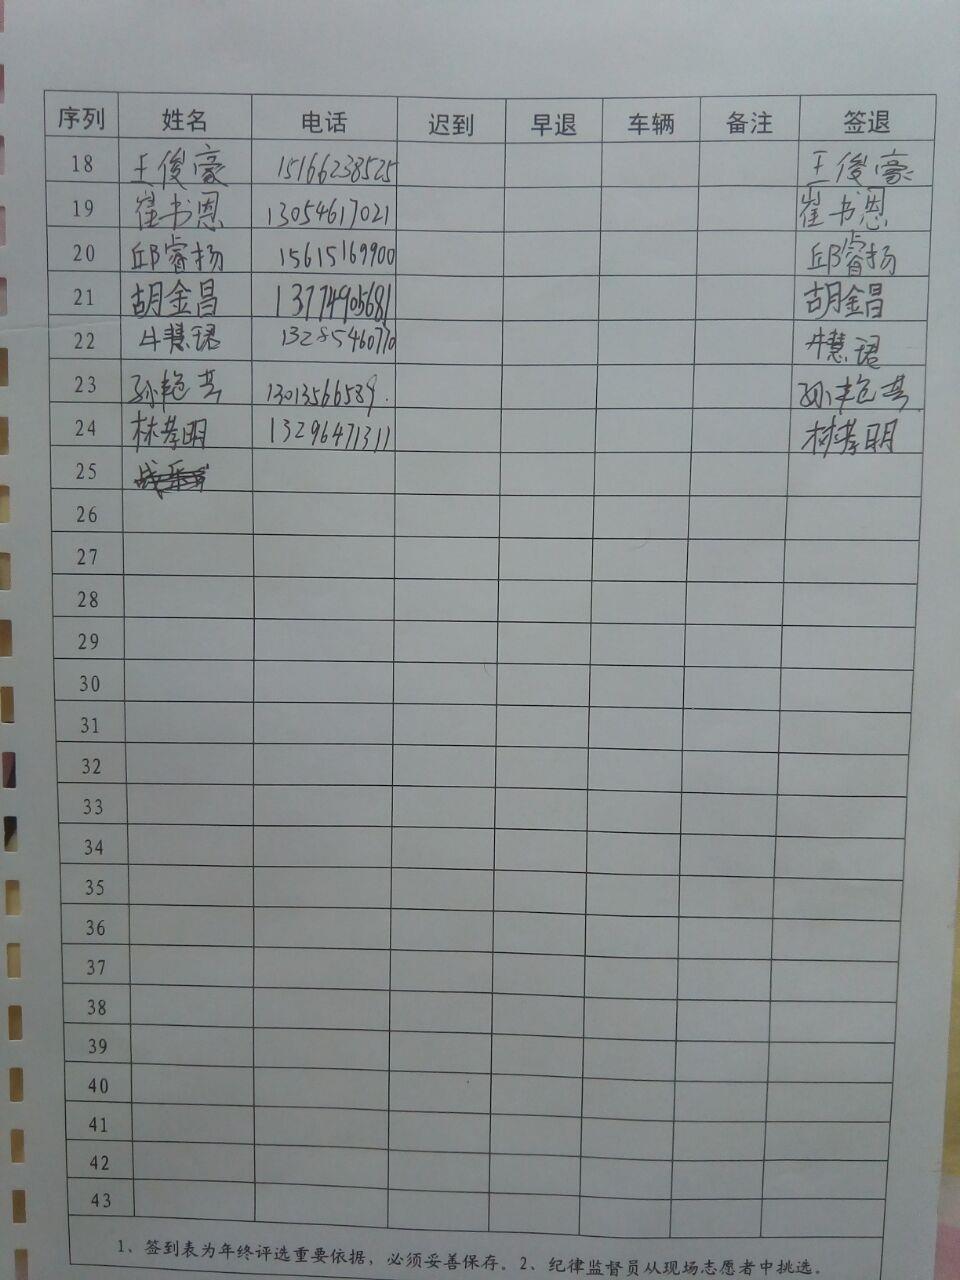 序列 姓名 电话 迟到 早退 车辆 备注 签退
18 王俊豪 15166238525 王俊豪
19 崔书恩 13054617021 崔书恩
20 邱睿扬 15615169900 邱睿扬
21 胡金昌 13774905681 胡金昌
22 牛慧珺 13285460770 牛慧珺
23 孙艳芸 13013566589. 孙艳芸
24 林孝明 13296471311 林孝明
25
26
27
28
29
30
31
32
33
34
35
36
37
38
39
40
41
42
43
1、签到表为年终评选重要依据，必须妥善保存。2、纪律监督员从现场志愿者中挑选。